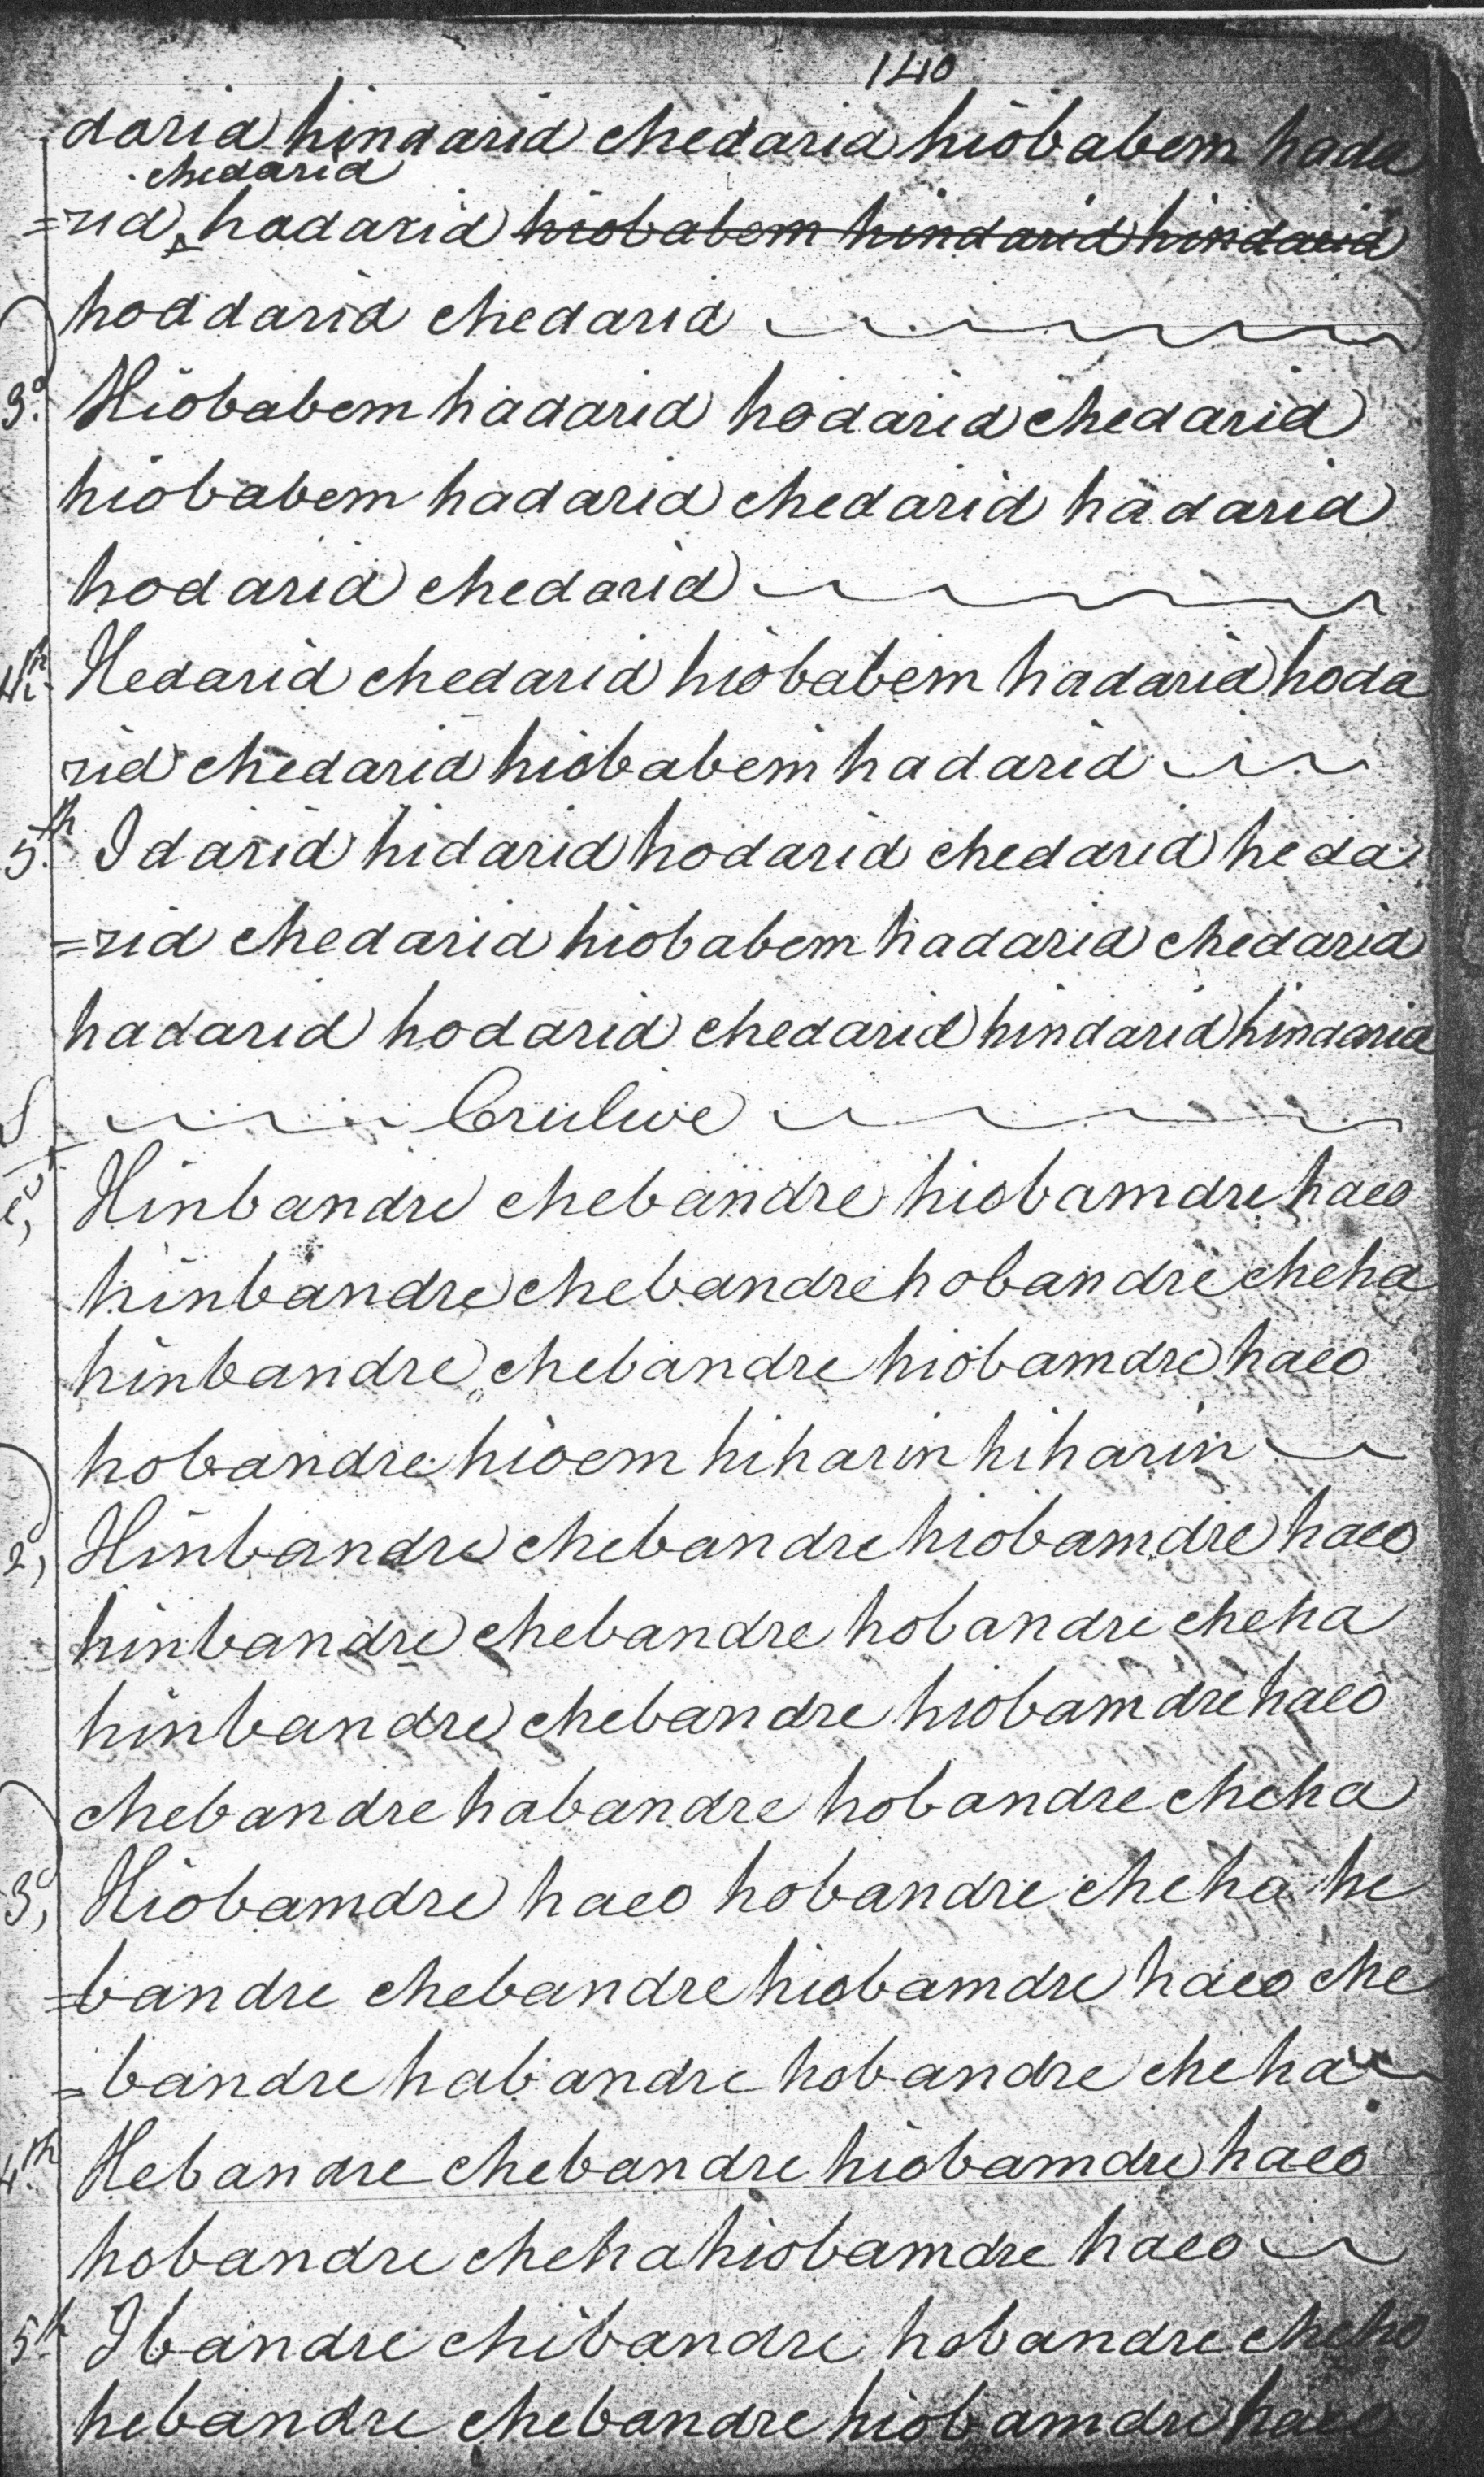 140
daria hindarid chedaria hiobabem hada
chedarid
=rid, hadarid hiobabem hindarid hindarid
hoddarid chedarid
3d. Hiobabem hadarid hodarid chedarid
hiobabem hadarid chedarid hadarid
hodarid chedarid
4th. Hedarid chedarid hiobabem hadarid hoda
rid chedarid hiobabem hadarid
5th. Idarid hidarid hodarid chedarid heda
=rid chedarid hiobabem hadarid chedarid
hadarid hodarid chedarid hindarid hindarid
Crulive
Hinbandre chebandre hiobamdre haeo
hinbandre chebandre hobandre cheha
hinbandre chebandre hiobamdre haeo
hobandre hioem hiharin hiharin
2d, Hinbandre chebandre hiobamdre haeo
hinbandre chebandre hobandre cheha
hinbandre chebandre hiobamdre haeo
chebandre habandre hobandre cheha
3d, Hiobamdre haeo hobandre cheha he
=bandre chebandre hiobamdre haeo che
=bandre habandre hobandre cheha
4th. Hebandre chebandre hiobamdre haeo
hobandre cheha hiobamdre haeo
5th Ibandre chibandre hobandre cheho
hebandre chebandre hiobamdre haeo